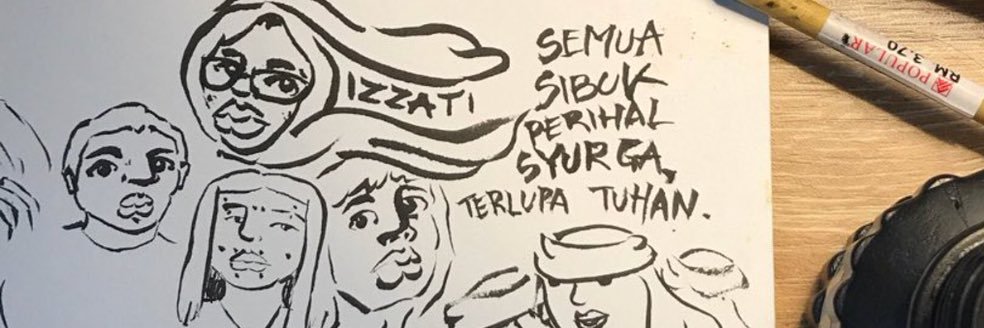 IZZATI
SEMUA
SIBUK
PERIHAL
SYURGA,
TERLUPA TUHAN.
POPULAR
RM 3.70